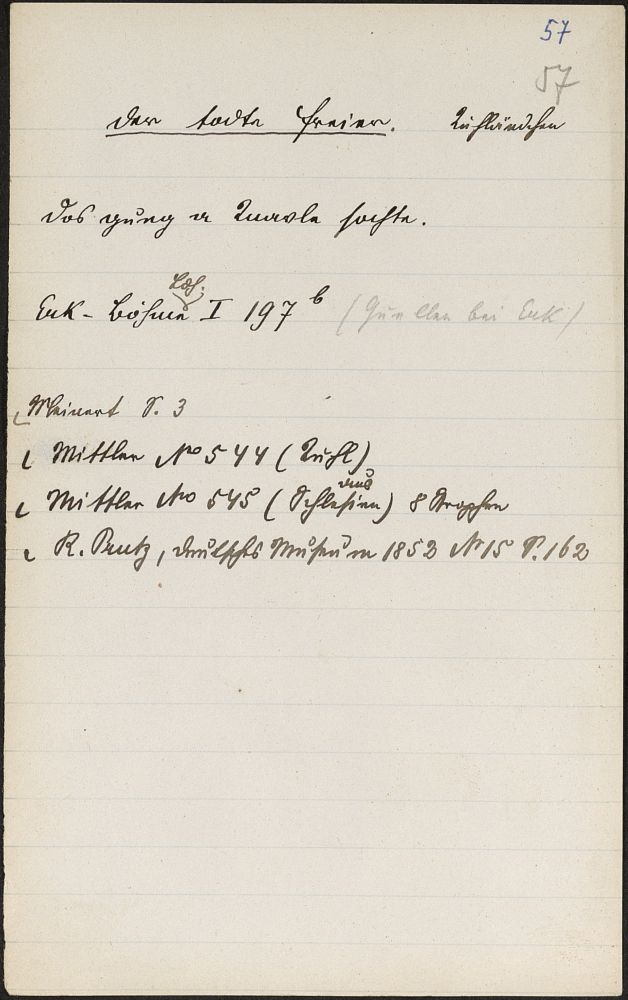 57
57
Der todte Freier. Kuhländchen
Dos gung a Knavle sochte.
Erk-Böhme Ldh. I 197 b (Quellen bei Erk)
Meinert S. 3
Mittler No 544 (Kuhl)
Mittler No 545 (aus Schlesien) 8 Strophen
R. Prutz, deutsches Museum 1852 No 15 S. 162